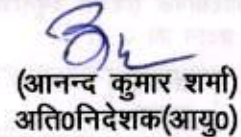 (आनन्द कुमार शर्मा)
अति0निदेशक(आयु0)